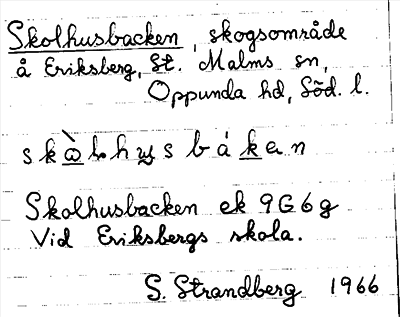 Skolhusbacken, skogsområde
å Eriksberg, St. Malms sn,
Oppunda hd, Söd. l.
Skolhusbacken ek 9G6g
Vid Eriksbergs skola.
S. Strandberg 1966